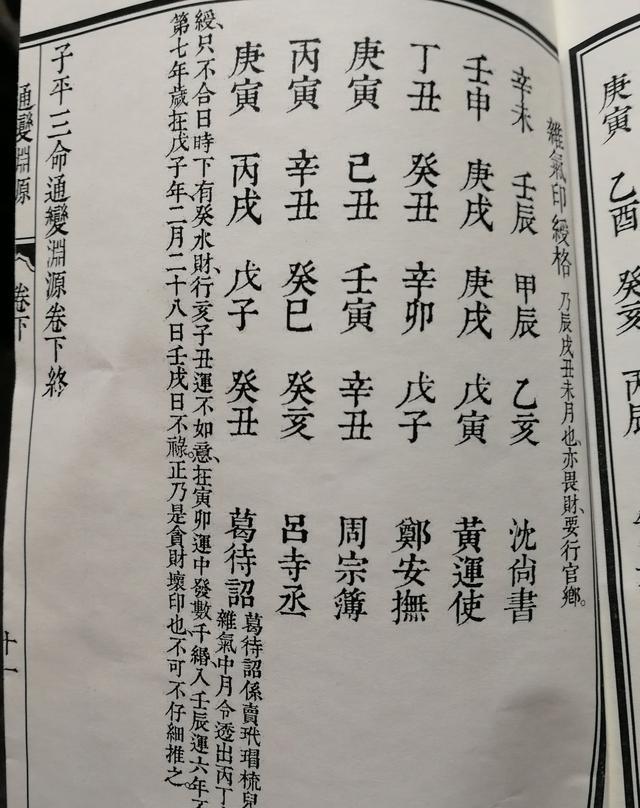 庚寅 乙酉 癸亥 丙辰
雜氣印綬格 乃辰戌丑未月也、亦畏財、要行官鄉。
辛未 壬辰 甲辰 乙亥 沈尙書
壬申 庚戌 庚戌 戊寅 黃運使
丁丑 癸丑 辛卯 戊子 鄭安撫
庚寅 己丑 壬寅 辛丑 周宗簿
丙寅 辛丑 癸巳 癸亥 呂寺丞
庚寅 丙戌 戊子 癸丑 葛待詔 葛待詔係賣玳瑁梳兒
雜氣中月令透出丙丁
綬、只不合日時下有癸水財、行亥子丑運不如意、在寅卯運中發數千緡、入壬辰運六年
第七年歲在戊子年二月二十八日壬戌日不祿。正乃是貪財壞印也、不可不仔細推之。
子平三命通變淵源卷下終
通變淵源 卷下 十一